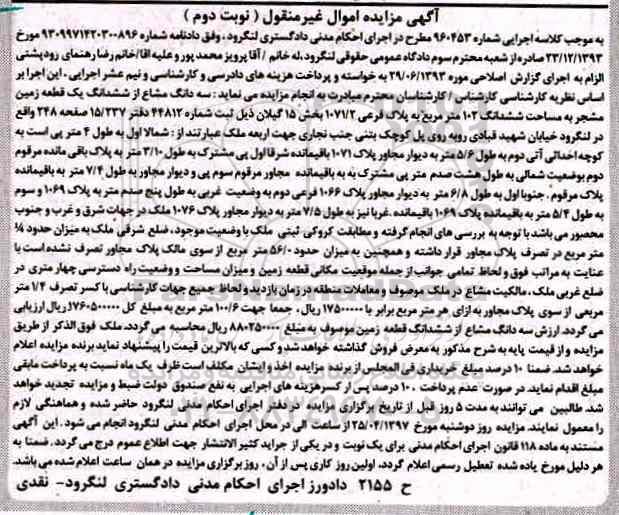 آگهی مزایده اموال غیرمنقول ( نوبت دوم )
به موجب کلاسه اجرایی شماره ۹۶۰۴۵۳ مطرح در اجرای احکام مدنی دادگستری لنگرود، وفق دادنامه شماره ۹۳۰۹۹۷۱۴۲۰۳۰۰۸۹۶ مورخ
۲۳/۱۲/۱۳۹۳ صادره از شعبه محترم سوم دادگاه عمومی حقوقی لنگرود، له خانم / آقا پرویز محمد پور و علیه آقا/خانم رضا رهنمای زودپشتی
الزام به اجرای گزارش اصلاحی موره ۲۹/۰۶/۱۳۹۳ به خواسته و پرداخت هزینه های دادرسی و کارشناسی و نیم عشر اجرایی . این اجرا بر
اساس نظریه کارشناسی کارشناس / کارشناسان محترم مبادرت به انجام مزایده می نماید : سه دانگ مشاع از ششدانگ یک قطعه زمین
مشجر به مساحت ششدانگ ۱۰۲ متر مربع به پلاک فرعی ۱۰۷۱/۲ بخش ۱۵ گیلان ذیل ثبت شماره ۴۴۸۱۲ دفتر ۱۵/۲۳۷ صفحه ۲۴۸ واقع
در لنگرود خیابان شهید قبادی روبه روی پل کوچک بتنی جنب نجاری جهت اربعه ملک عبارتند از : شمالا اول به طول ۴ متر پی است به
کوچه احداثی آتی دوم به طول ۵/۶ متر به دیوار مجاور پلاک ۱۰۷۱ باقیمانده شرقا اول پی مشترک به طول ۳/۱۰ متر به پلاک باقی مانده مرقوم
دوم بوضعیت شمالی به طول هشت صدم متر پی مشترک به به باقیمانده مجاور مرقوم سوم پی و دیوار مجاور به طول ۷/۴ متر به باقیمانده
پلاک مرقوم . جنوبا اول به طول ۶/۸ متر به دیوار مجاور پلاک ۱۰۶۶ فرعی دوم به وضعیت غربی به طول پنج صدم متر به پلاک ۱۰۶۹ و سوم
به طول ۵/۴ متر به باقیمانده پلاک ۱۰۶۹ باقیمانده .غربا نیز به طول ۷/۵ متر به دیوار مجاور پلاک ۱۰۷۶ ملک در جهات شرق و غرب و جنوب
محصور می باشد با توجه به بررسی های انجام گرفته و مطابقت کروکی ثبتی ملک با وضعیت موجود، ضلع شرقی ملک به میزان حدود
متر مربع در تصرف پلاک مجاور قرار داشته و همچنین به میزان حدود ۰/۵۶ متر مربع از سوی مالک پلاک مجاور تصرف نشده است با
عنایت به مراتب فوق و لحاظ تمامی جوانب از جمله موقعیت مکانی قطعه زمین و میزان مساحت و وضعیت راه دسترسی چهار متری در
ضلع غربی ملک ، مالکیت مشاع در ملک موصوف و معاملات منطقه در زمان بازدید و لحاظ جمیع جهات کارشناسی با کسر تصرف ۱/۴ متر
مربعی از سوی پلاک مجاور به ازای هر متر مربع برابر با ۱۷۵۰۰۰۰۰ ریال ، جمعا جهت ۱۰۰/۶ متر مربع به مبلغ کل ۱۷۶۰۵۰۰۰۰۰ ریال ارزیابی
می گردد. ارزش سه دانگ مشاع از ششدانگ قطعه زمین موصوف به مبلغ ۸۸۰۲۵۰۰۰۰ ریال محاسبه می گردد. ملک فوق الذکر از طریق
مزایده و از قیمت پایه به شرح مذکور به معرض فروش گذاشته خواهد شد و کسی که بالاترین قیمت را پیشنهاد نماید برنده مزایده اعلام
خواهد شد. ضمنا ۱۰ درصد مبلغ خریداری فی المجلس از برنده مزایده اخذ و ایشان مکلف است ظرف یک ماه نسبت به پرداخت مابقی
مبلغ اقدام نماید. در صورت عدم پرداخت ، ۱۰ درصد پس از کسر هزینه های اجرایی به نفع صندوق دولت ضبط و مزایده تجدید خواهد
شد. طالبین می توانند به مدت ۵ روز قبل از تاریخ برگزاری مزایده در دفتر اجرای احکام مدنی لنگرود حاضر شده و هماهنگی لازم
را معمول نمایند. مزایده روز دوشنبه مورخ ۲۵/۰۴/۱۳۹۷ از ساعت الی در محل اجرای احکام مدنی لنگرود انجام می شود . این آگهی
مستند به ماده ۱۱۸ قانون اجرای احکام مدنی برای یک نوبت و در یکی از جراید کثیر الانتشار جهت اطلاع عموم درج می گردد. ضمنا به
هر دلیل مورخ یاد شده تعطیل رسمی اعلام گردد، اولین روز کاری پس از آن ، روز برگزاری مزایده در همان ساعت اعلام شده می باشد.
ح ۲۱۵۵ دادورز اجرای احکام مدنی دادگستری لنگرود- نقدی